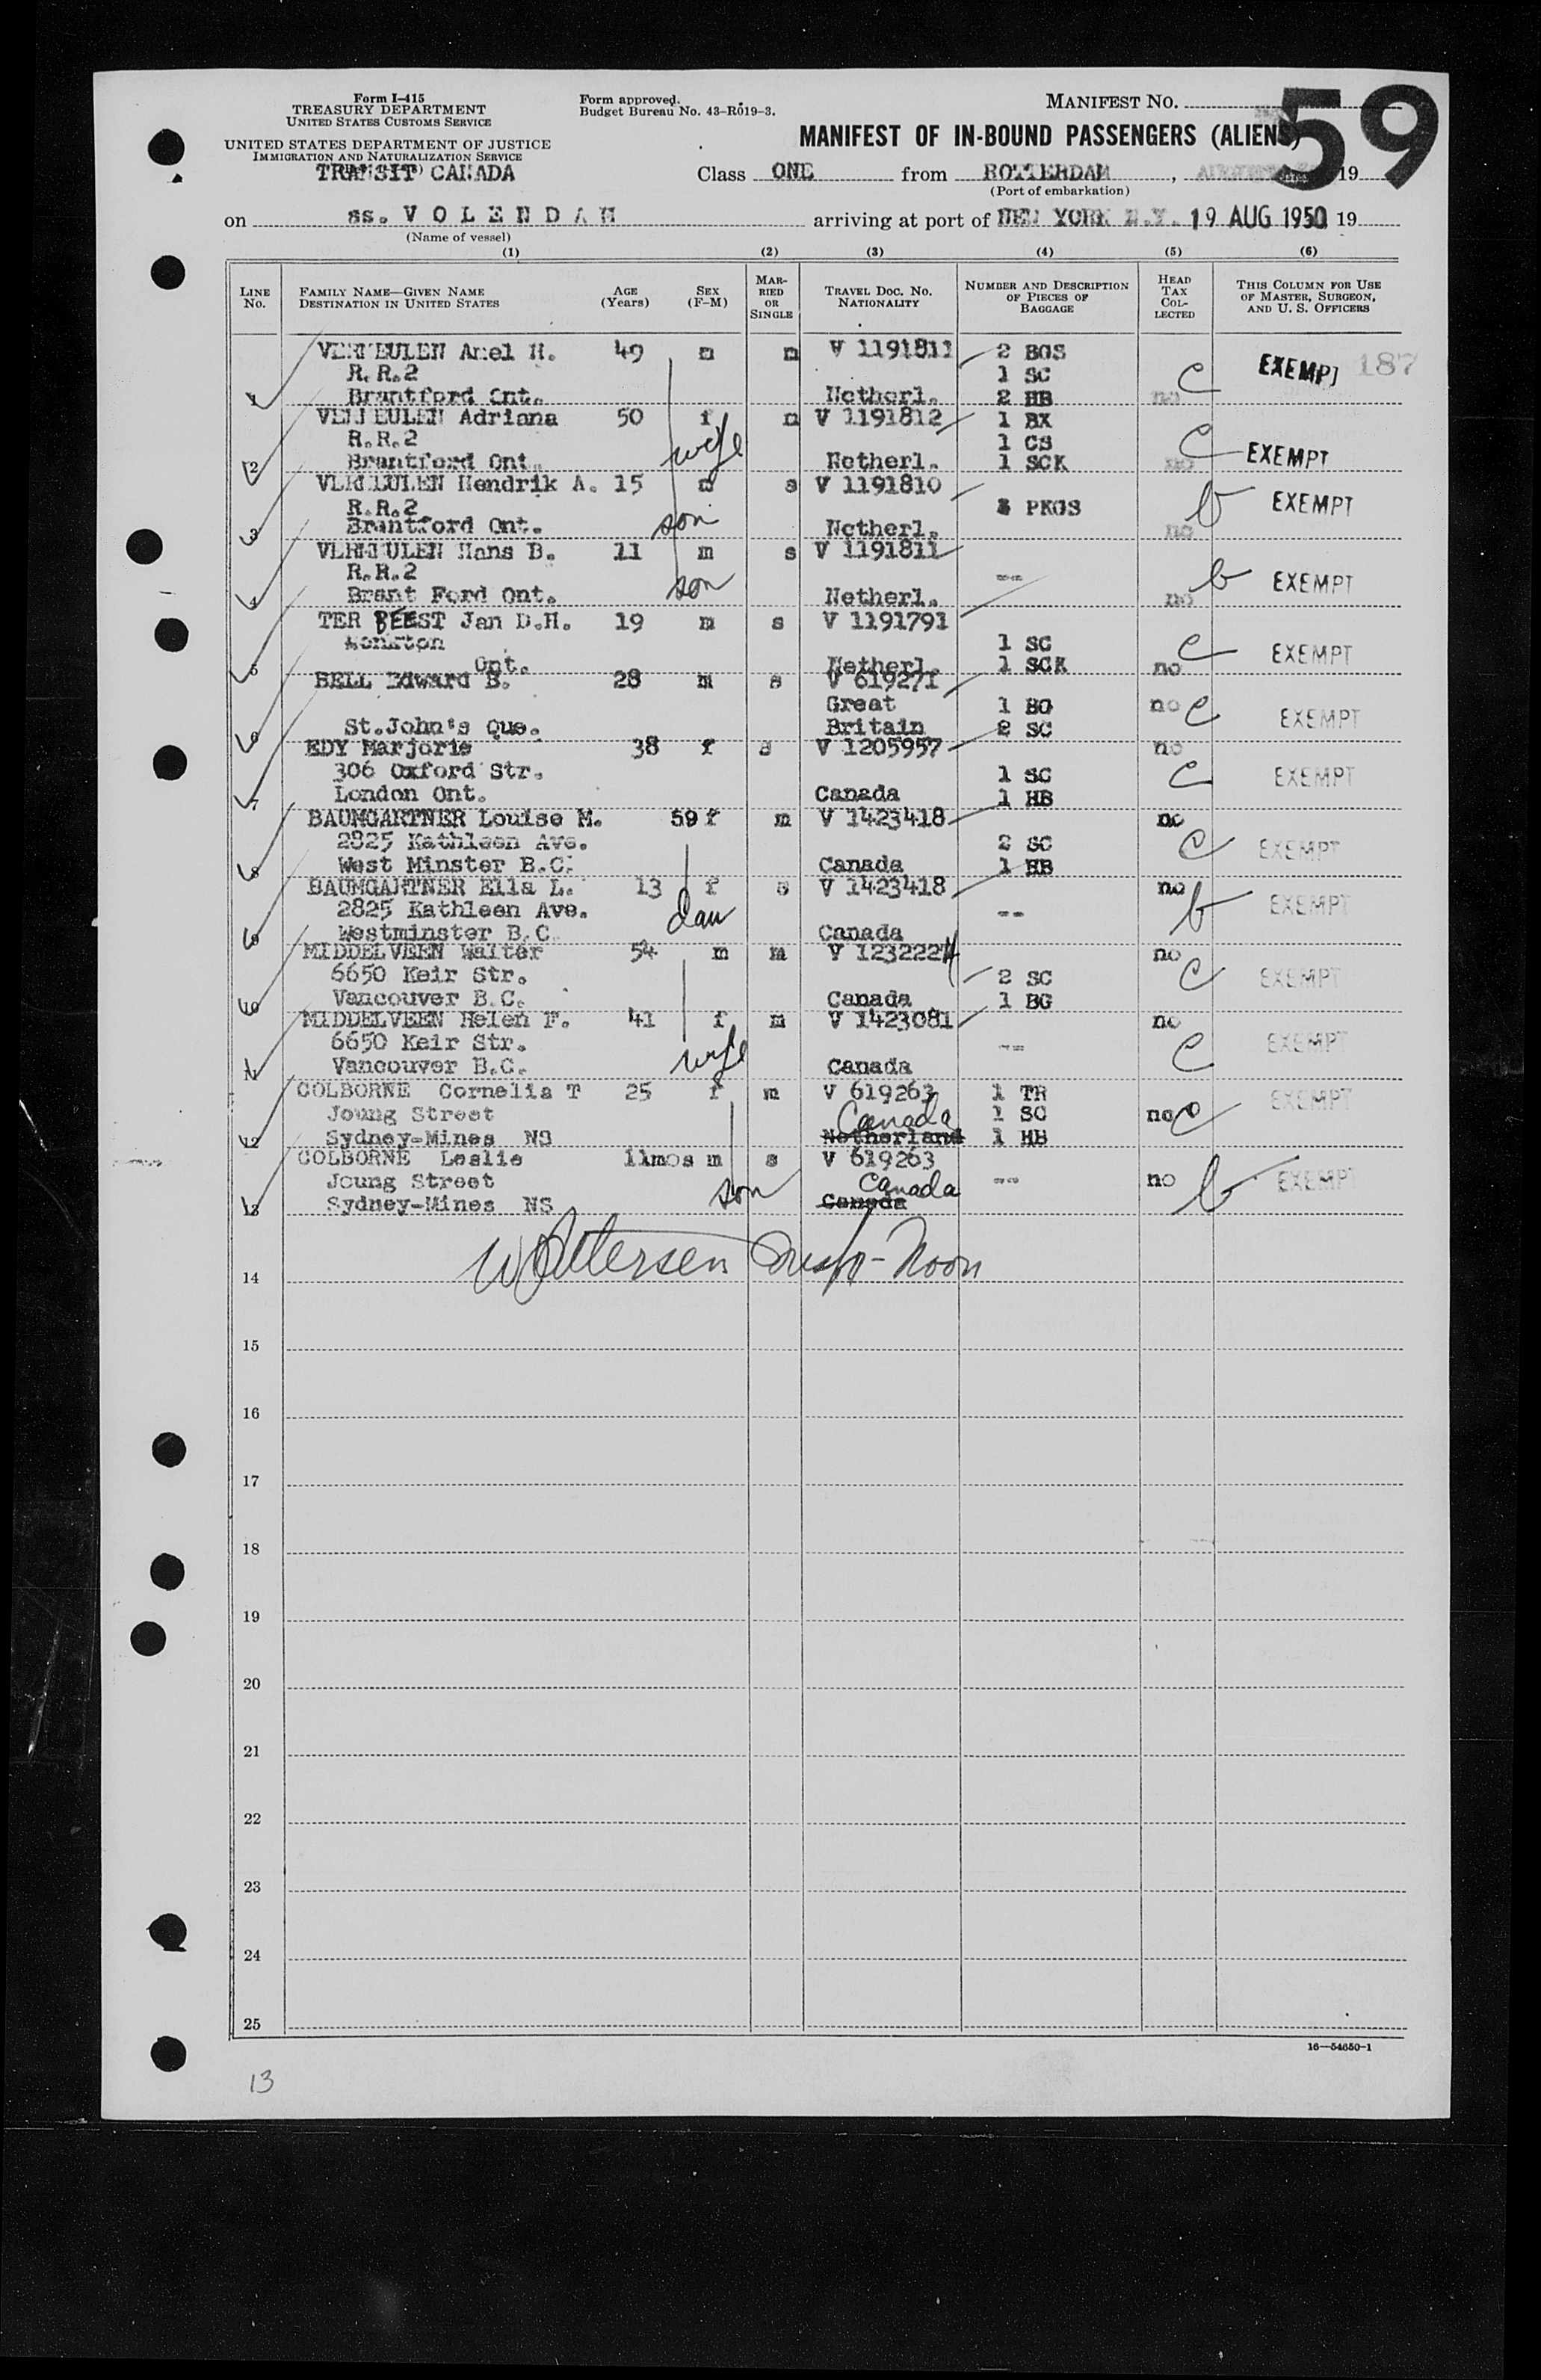 Form I-415
TREASURY DEPARTMENT
UNITED STATES CUSTOMS SERVICE
UNITED STATES DEPARTMENT OF JUSTICE
IMMIGRATION AND NATURALIZATION SERVICE
TRANSIT CANADA
Form approved.
Budget Bureau No. 43-R019-3.
MANIFEST NO. 59
MANIFEST OF IN-BOUND PASSENGERS (ALIENS)
Class ONE from ROTTERDAM, 19
(Port of embarkation)
on ss. VOLENDAM arriving at port of NEW YORK N.Y. 19 AUG 1950 19
(Name of vessel)
(1) (2) (3) (4) (5) (6)
LINE NO. FAMILY NAME—GIVEN NAME DESTINATION IN UNITED STATES AGE (Years) SEX (F-M) MARRIED OR SINGLE TRAVEL DOC. NO. NATIONALITY NUMBER AND DESCRIPTION OF PIECES OF BAGGAGE HEAD TAX COLLECTED THIS COLUMN FOR USE OF MASTER, SURGEON, AND U. S. OFFICERS
VERMEULEN H. 49 m m V 1191811 2 BGS EXEMPT 187
R.R.2 1 SC C
1 Brantford Ont. Netherl. 2 HB no
VERMEULEN Adriana 50 f m V 1191812 1 BX
R.R.2 wife 1 CS C EXEMPT
2 Brantford Ont. Netherl. 1 SCK no
VERMEULEN Hendrik A. 15 m s V 1191810
R.R.2 PKGS b EXEMPT
3 Brantford Ont. son Netherl. no
VERMEULEN Hans B. 11 m s V 1191811
R.R.2 -- b EXEMPT
4 Brant Ford Ont. son Netherl. no
TER BEEST Jan D.H. 19 m s V 1191791
Monkton 1 SC C EXEMPT
5 Ont. Netherl. 1 SCK no
BELL Edward B. 28 m s V 619271
Great 1 BG no C EXEMPT
6 St.John's Que. Britain 2 SC
EDY Marjorie 38 f s V 1205957 no
306 Oxford Str. 1 SC C EXEMPT
7 London Ont. Canada 1 HB
BAUMGARTNER Louise M. 59 f m V 1423418 no
2825 Kathleen Ave. 2 SC C EXEMPT
8 West Minster B.C. Canada 1 HB
BAUMGARTNER Ella L. 13 f s V 1423418 no
2825 Kathleen Ave. dau -- b EXEMPT
9 Westminster B.C. Canada
MIDDELVEEN Walter 54 m m V 1232224 no
6650 Keir Str. 2 SC C EXEMPT
10 Vancouver B.C. Canada 1 BG
MIDDELVEEN Helen F. 41 f m V 1423081 no
6650 Keir Str. wife -- C EXEMPT
11 Vancouver B.C. Canada
COLBORNE Cornelia T 25 f m V 619263 1 TR EXEMPT
Joung Street Canada 1 SC no C
12 Sydney-Mines NS Netherland 1 HB
COLBORNE Leslie 11mos m s V 619263
Joung Street son Canada -- no b EXEMPT
13 Sydney-Mines NS Canada
14
15
16
17
18
19
20
21
22
23
24
25
16—54650-1
13